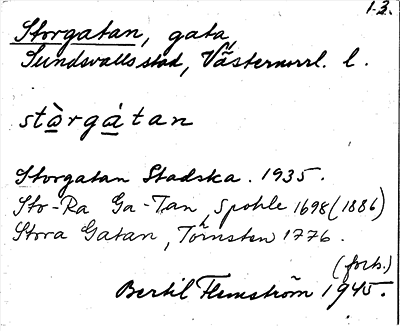 1-3.
Storgatan, gata,
Sundsvalls stad, Västernorrl. l.
stòrgátan
Storgatan Stadska. 1935.
Sto-Ra Ga-Tan, Spohle 1698 (1886)
Stora Gatan, Törnsten 1776.
(forts.)
Bertil Flemström 1945.